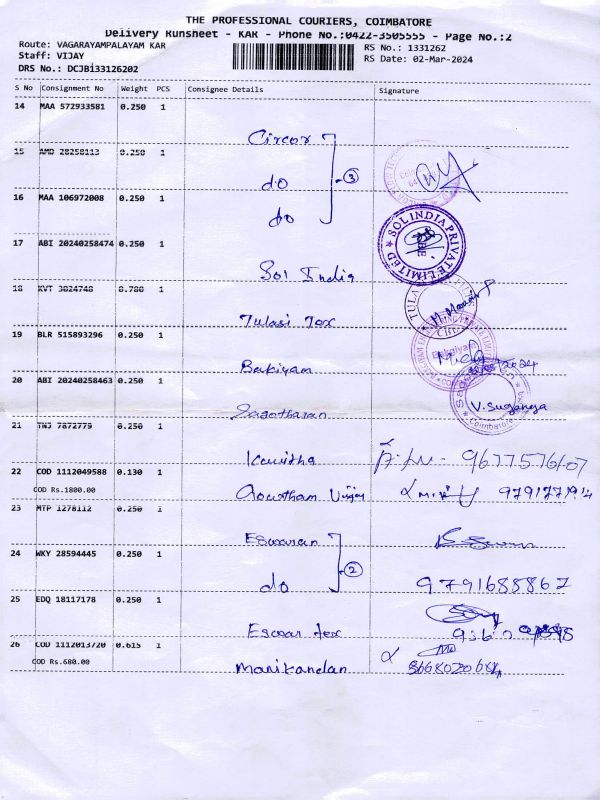 THE PROFESSIONAL COURIERS, COIMBATORE
Delivery Runsheet - KAR - Phone No.:0422-3505555 - Page No.:2
Route: VAGARAYAMPALAYAM KAR
RS No.: 1331262
Staff: VIJAY
RS Date: 02-Mar-2024
DRS No.: DCJB133126202
S No Consignment No Weight PCS Consignee Details Signature
14 MAA 572933581 0.250 1
Circor
15 AMD 28258113 0.250 1
do
3
16 MAA 106972008 0.250 1
do
17 ABI 20240258474 0.250 1
SOL INDIA PRIVATE LIMITED
Sol India
18 KVT 3824748 0.780 1
Tulasi Tex
19 BLR 515893296 0.250 1
Bakiyam
20 ABI 20240258463 0.250 1
V. Suganya
Coimbatore
21 TNJ 7872779 0.250 1
Kavitha 9677576107
22 COD 1112049588 0.130 1
COD Rs.1800.00
Gowtham
23 MTP 1278112 0.250 1
Eswaran
2
24 WKY 28594445 0.250 1
do 9791688867
25 EDQ 18117178 0.250 1
Eswar tex
26 COD 1112013720 0.615 1
COD Rs.680.00
Manikandan